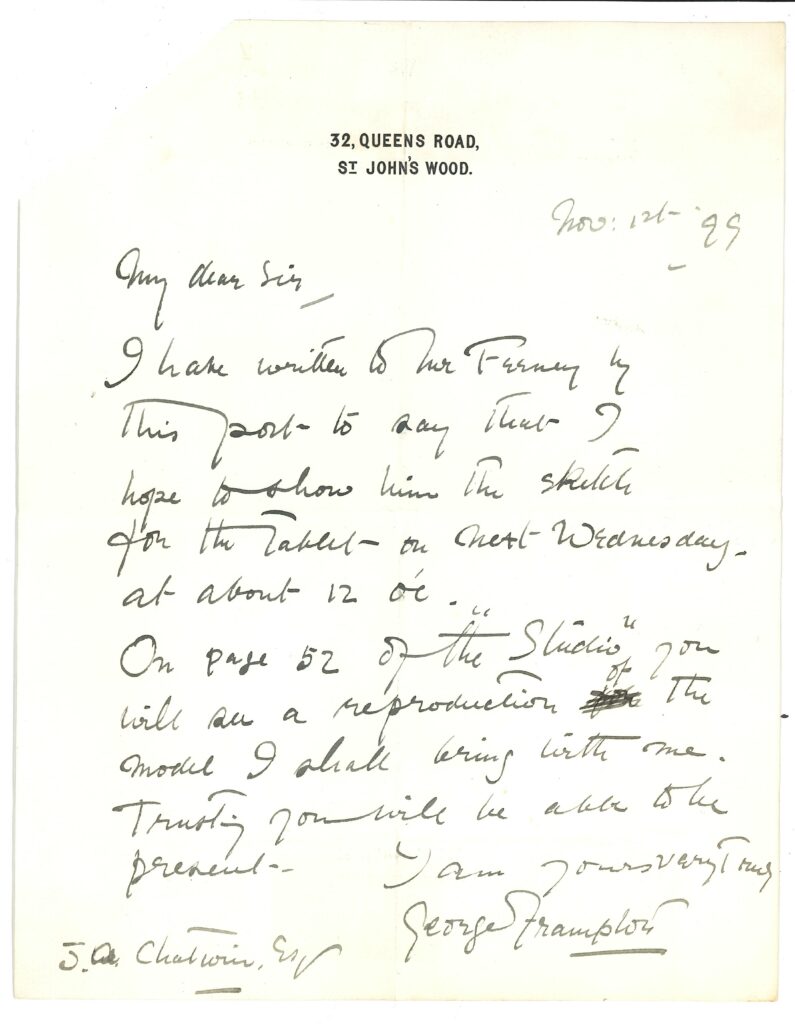 32, QUEENS ROAD,
ST JOHN'S WOOD.
Nov: 12th '99
My dear Sir
I have written to Mr Feeney by
this post to say that I
hope to show him the sketch
for the Tablet on next Wednesday.
at about 12 o'c.
On page 52 of the "Studio" you
will see a reproduction of the
model I shall bring with me.
Trusting you will be able to be
present I am yours very truly
George Frampton
J.A. Chatwin, Esq